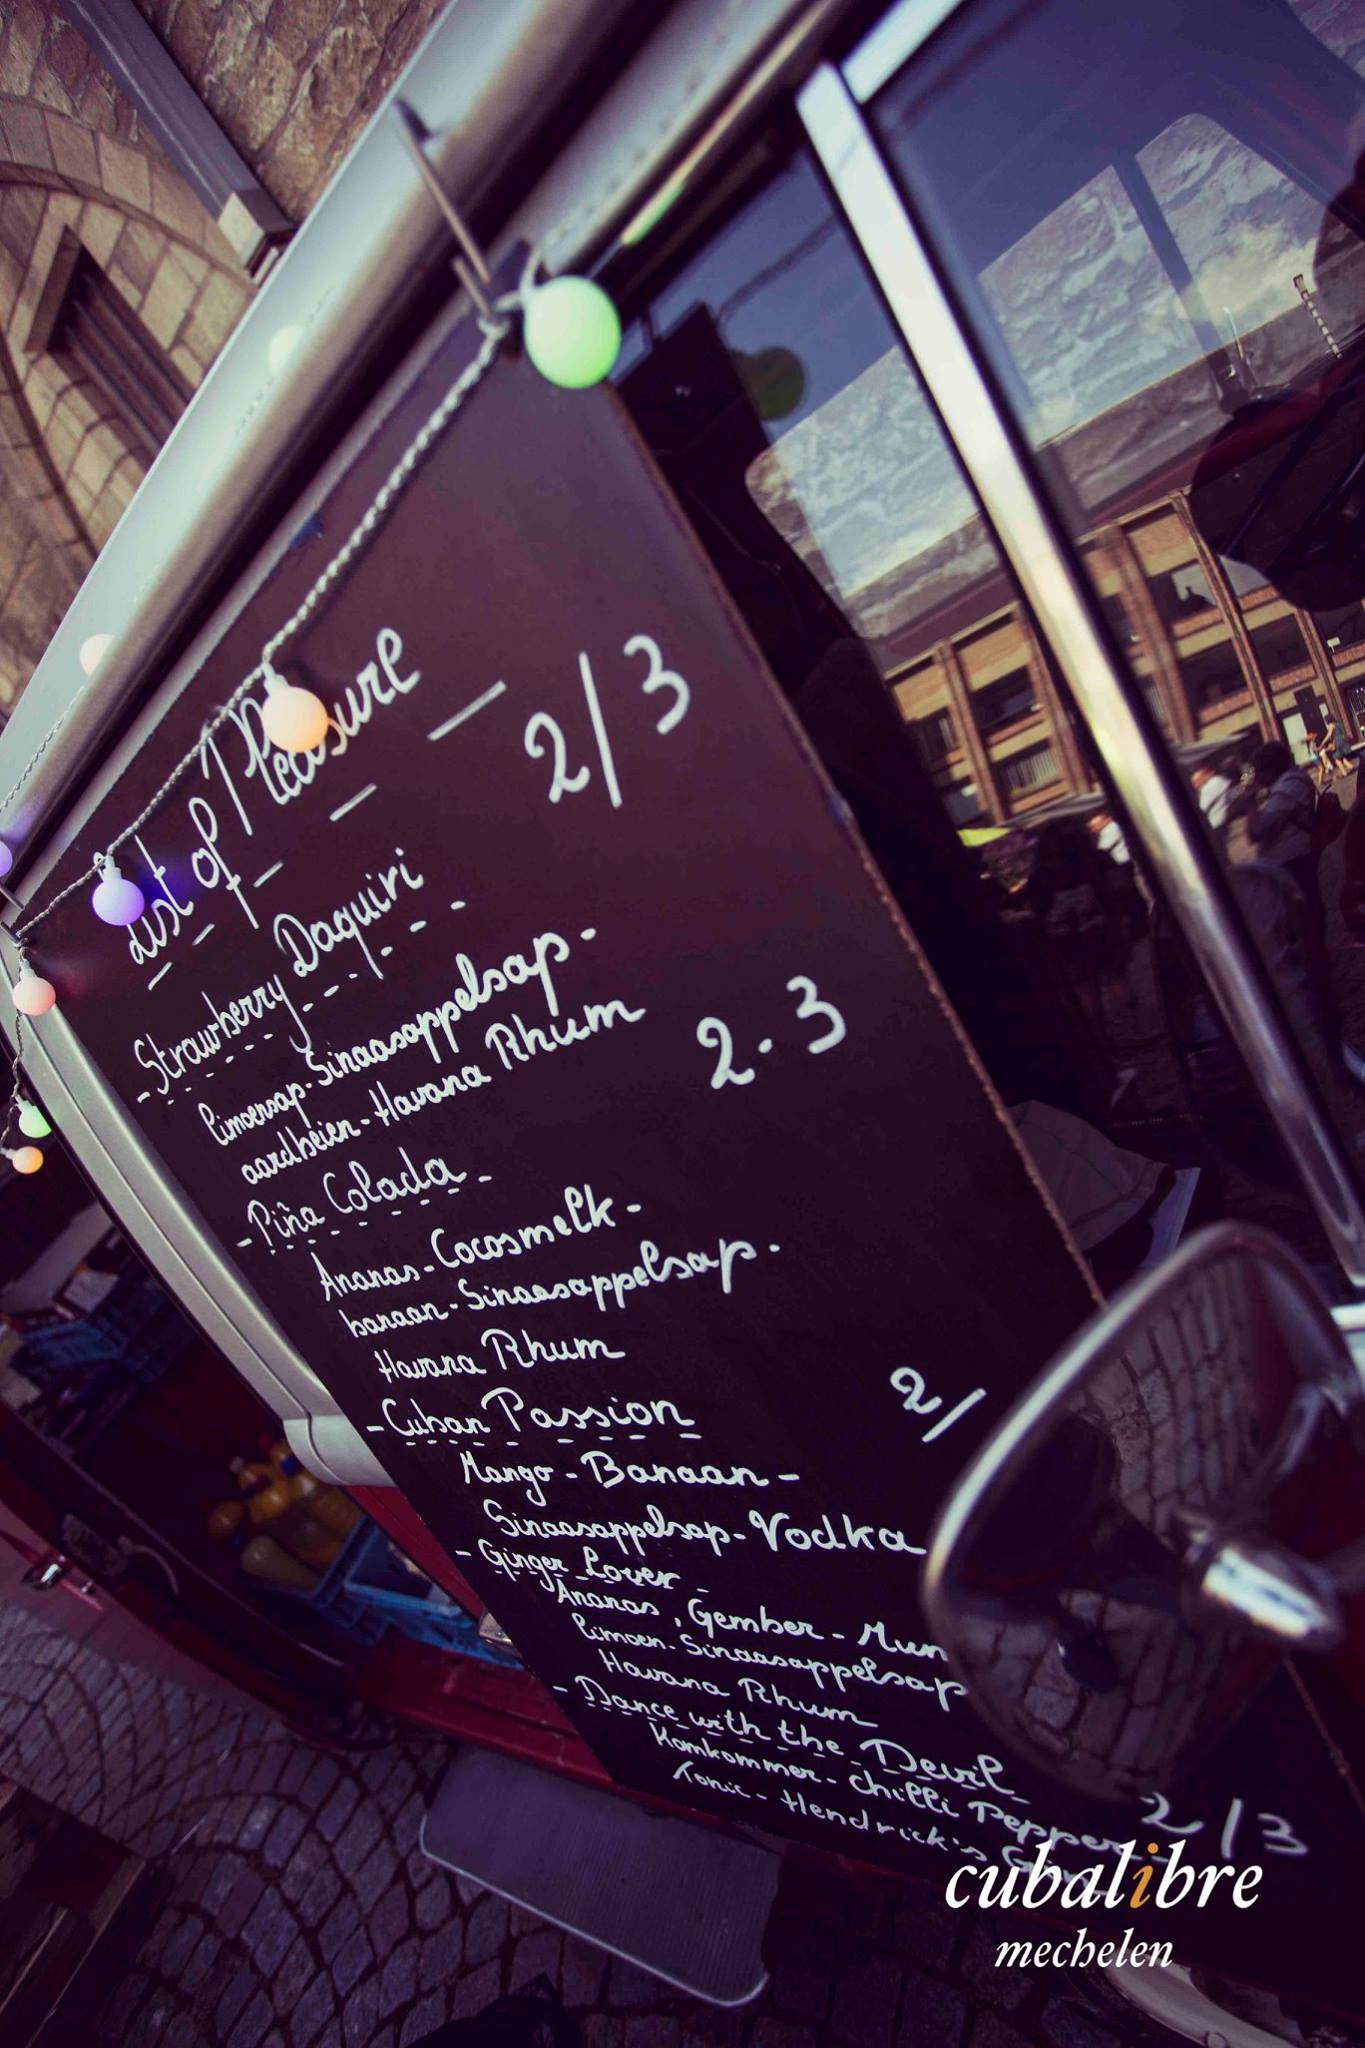 List of Pleasure
- Strawberry Daquiri 2/3
limoensap - Sinaasappelsap -
aardbeien - Havana Rhum
- Piña Colada - 2 - 3
Ananas - Cocosmelk -
banaan - Sinaasappelsap -
Havana Rhum
- Cuban Passion 2/
Mango - Banaan -
Sinaasappelsap - Vodka
- Ginger Lover -
Ananas, Gember - Mun
limoen - Sinaasappelsap
Havana Rhum
- Dance with the Devil 2/3
Komkommer - chilli Pepper -
Tonic - Hendrick's
cubalibre
mechelen